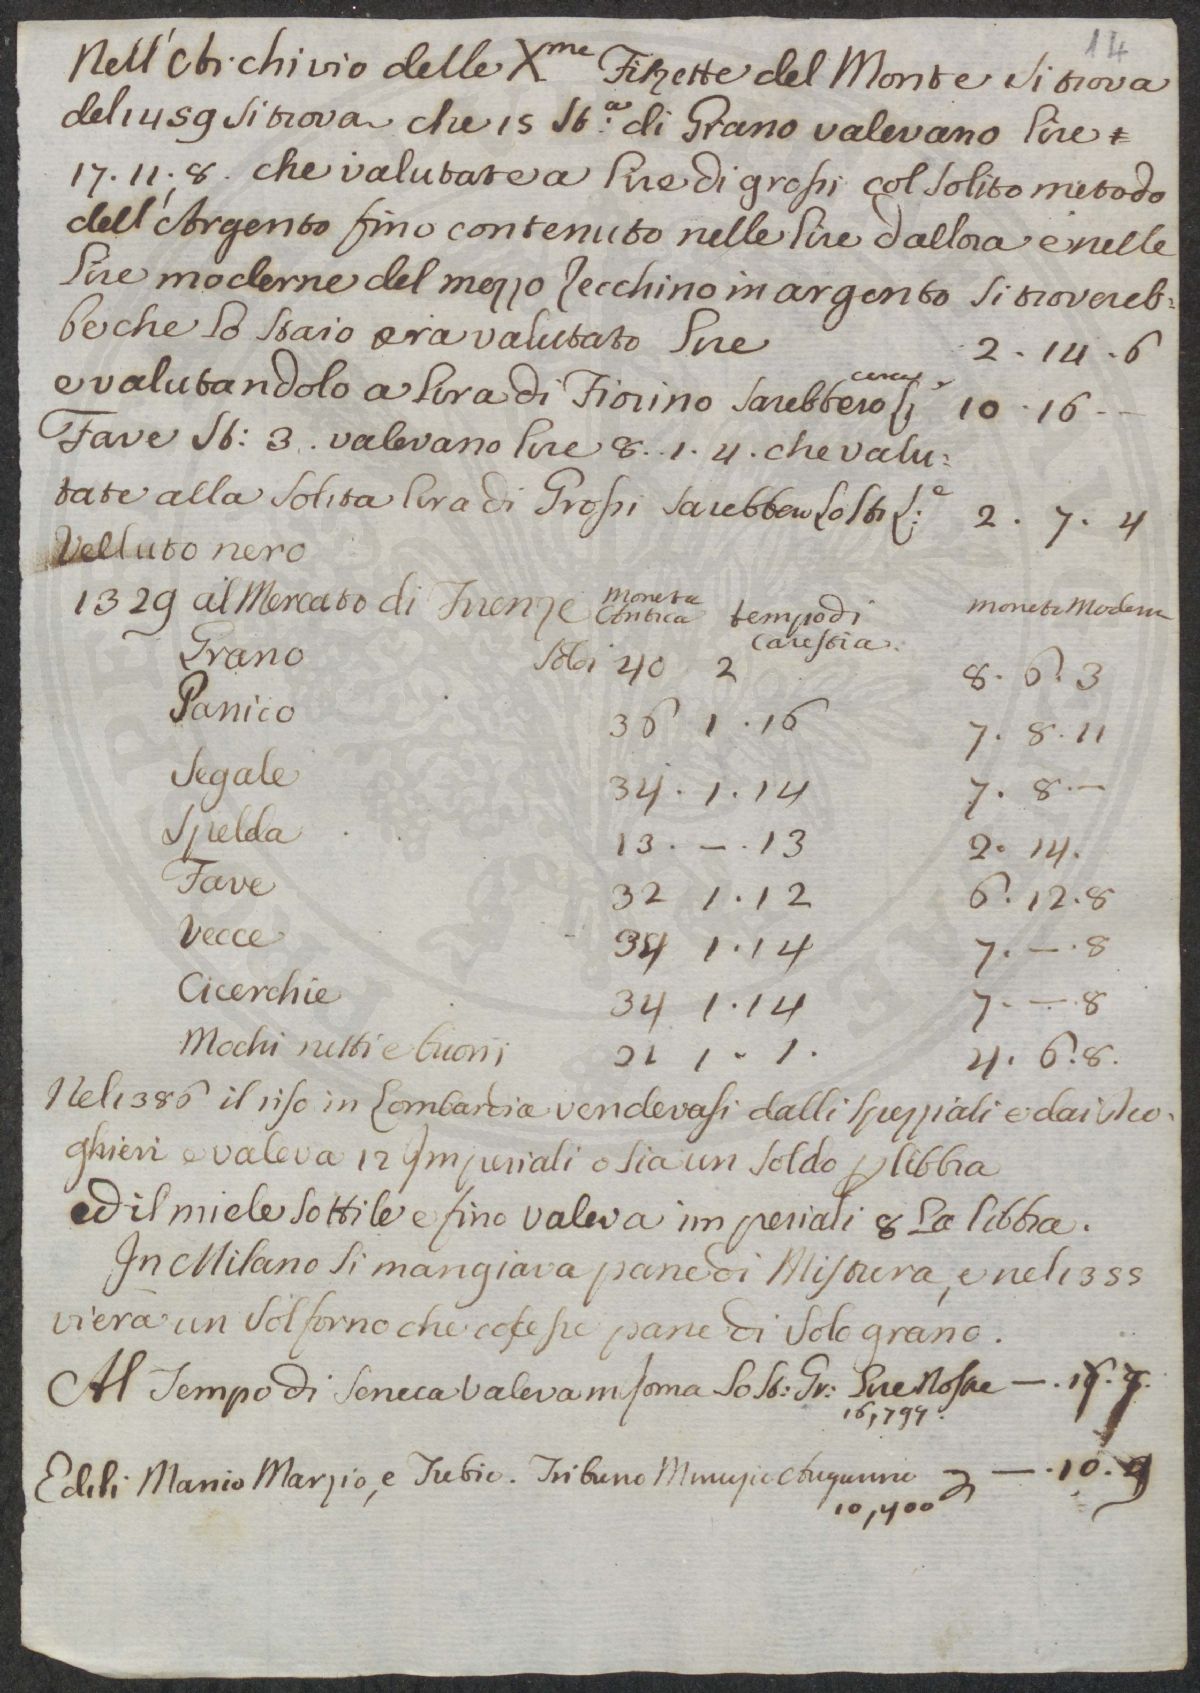 14
Nell'Archivio delle Xme Filzette del Monte si trova
del 1459 si trova che 15 St.a di Grano valevano Lire
17. 11. 8. che valutate a Lire di grossi col solito metodo
dell'Argento fino contenuto nelle Lire d'allora e nelle
Lire moderne del mezzo Zecchino in argento si trovereb=
be che lo Staio era valutato Lire 2. 14. 6
e valutandolo a Lira di Fiorino sarebbero circa L 10. 16. -
Fave St: 3. valevano Lire 8. 1. 4. che valu=
tate alla solita Lira di Grossi sarebbero lo St: L: 2. 7. 4
Velluto nero
1329 al Mercato di Firenze Moneta Antica tempo di Carestia. Moneta Moderna
Grano Soldi 40 2 8. 6. 3
Panico 36 1. 16 7. 8. 11
Segale 34. 1. 14 7. 8. -
Spelda 13. -. 13 2. 14.
Fave 32 1. 12 6. 12. 8
Vecce 34 1. 14 7. -. 8
Cicerchie 34 1. 14 7. -. 8
Mochi netti e buoni 21 1. 1. 4. 6. 8.
Nel 1386 il riso in Lombardia vendevasi dalli Spezziali e dai Dro=
ghieri e valeva 12 Imperiali o sia un Soldo p libbra
ed il miele sottile e fino valeva imperiali 8 la libbra.
In Milano si mangiava pane di Mistura, e nel 1355
vi era un sol forno che cocesse pane di solo grano.
Al Tempo di Seneca valeva in Roma lo St: Gr: Lire Nostre -. 16.
16,797.
Edili Manio Marzio, e Trebio. Tribuno Minuzio Augurino -. 10.
10,400